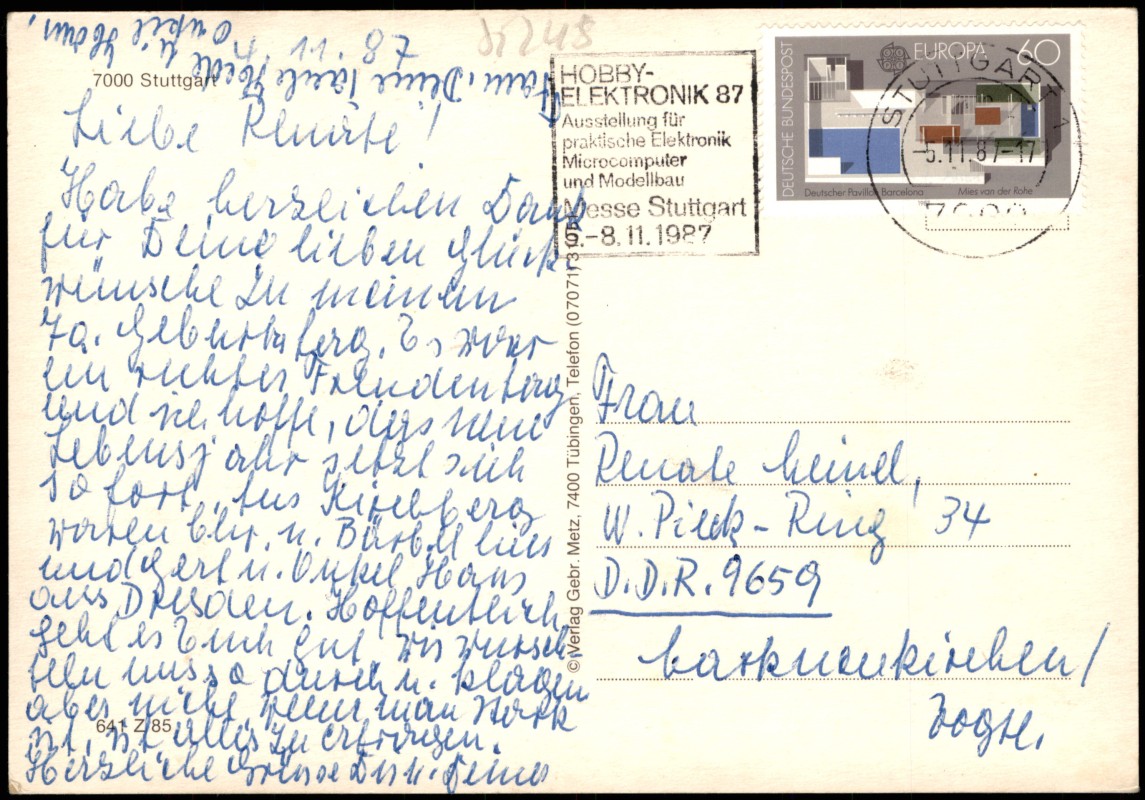 4. 11. 87
7000 Stuttgart
Liebe Renate!
Habe herzlichen Dank
für Deine lieben Glück
wünsche zu meinem
70. Geburtstag. Es war
ein richtes Freudentag
und ich hoffe, dass mein
Lebensjahr jetzt sich
so fort. Aus Kirchberg
waren Chr. u. Bärbel hier
und Gert u. Onkel Hans
aus Dresden. Hoffentlich
geht es Euch gut. Wir wursch
teln uns so durch u. klagen
aber nicht, wenn man stark
ist, ist alles zu ertragen.
Herzliche Grüsse Dir u. Deiner
Fam. Deine Tante u.
Onkel Hans.
641 Z 85
© Verlag Gebr. Metz, 7400 Tübingen, Telefon (07071) 3
HOBBY-
ELEKTRONIK 87
Ausstellung für
praktische Elektronik
Microcomputer
und Modellbau
Messe Stuttgart
5.-8.11.1987
DEUTSCHE BUNDESPOST
EUROPA 60
Deutscher Pavillon Barcelona Mies van der Rohe
STUTTGART 1
-5.11.87-17
7000
Frau
Renate Meinel,
W. Pieck-Ring 34
D.D.R. 9659
Markneukirchen/
Vogtl.